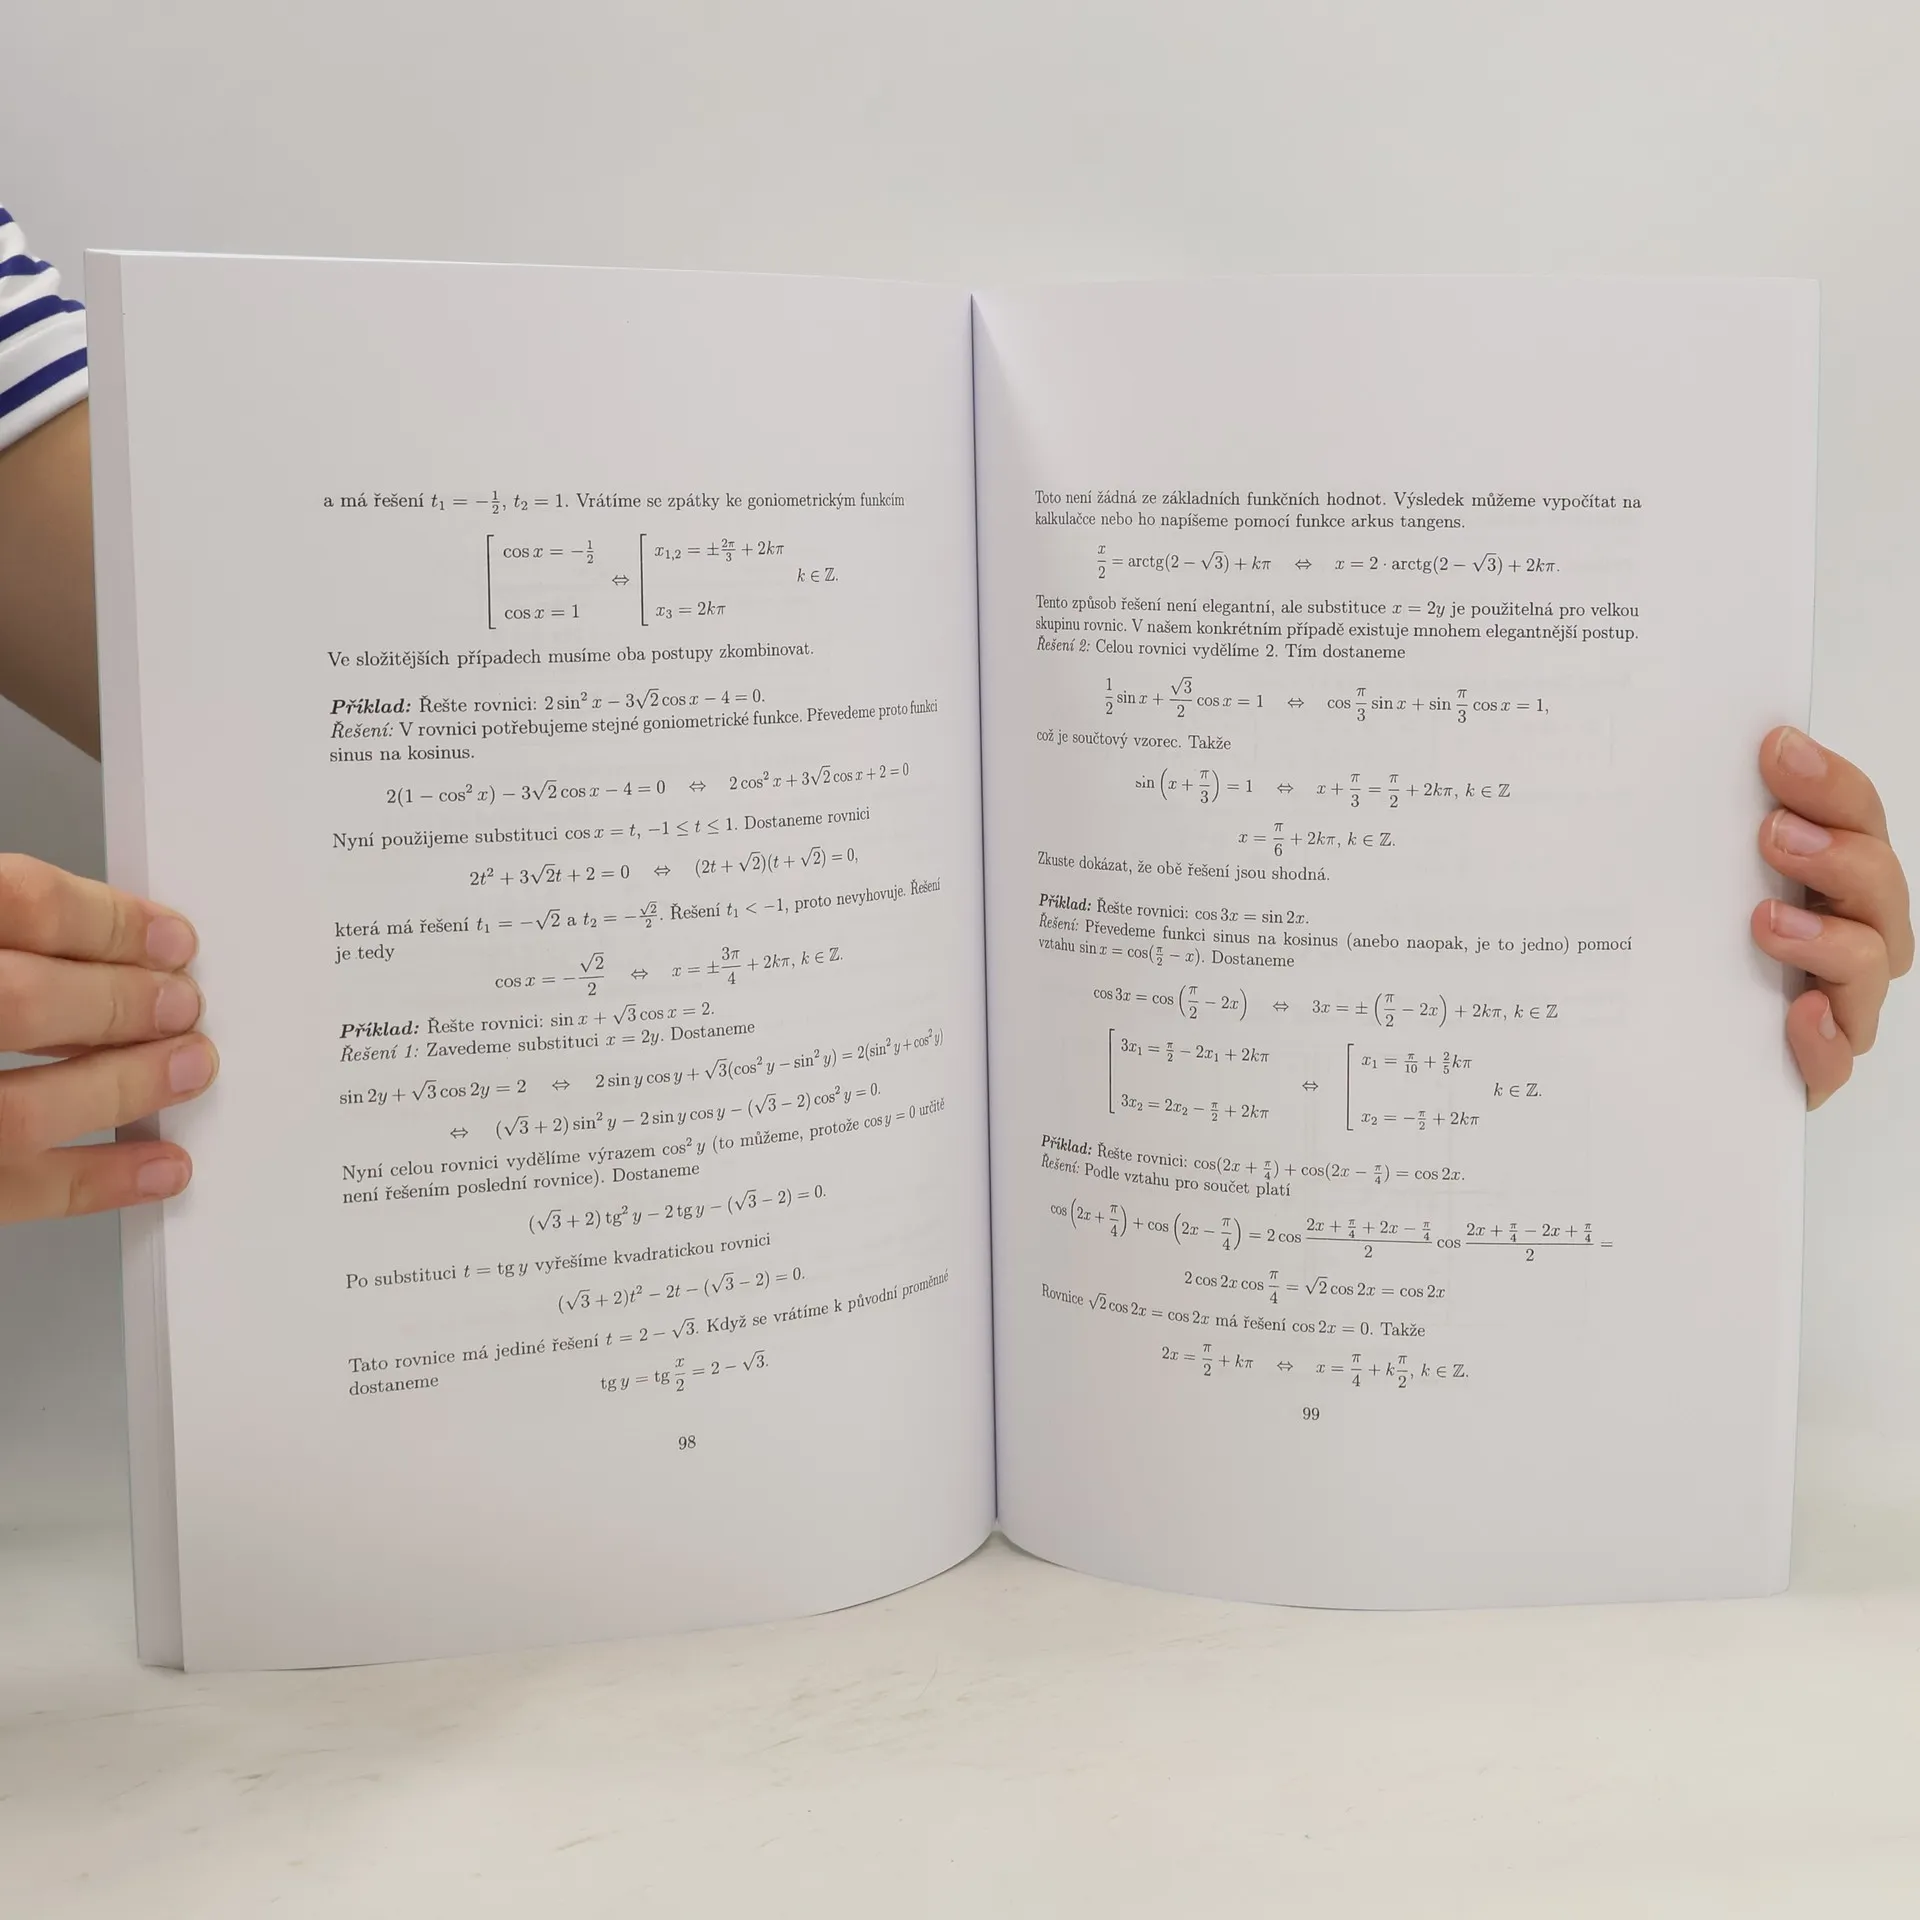 a má řešení t₁ = −1/2, t₂ = 1. Vrátíme se zpátky ke goniometrickým funkcím
cos x = −1/2
cos x = 1
⇔
x₁,₂ = ±2π/3 + 2kπ
x₃ = 2kπ
k ∈ ℤ.
Ve složitějších případech musíme oba postupy zkombinovat.
Příklad: Řešte rovnici: 2 sin² x − 3√2 cos x − 4 = 0.
Řešení: V rovnici potřebujeme stejné goniometrické funkce. Převedeme proto funkci
sinus na kosinus.
2(1 − cos² x) − 3√2 cos x − 4 = 0 ⇔ 2 cos² x + 3√2 cos x + 2 = 0
Nyní použijeme substituci cos x = t, −1 ≤ t ≤ 1. Dostaneme rovnici
2t² + 3√2t + 2 = 0 ⇔ (2t + √2)(t + √2) = 0,
která má řešení t₁ = −√2 a t₂ = −√2/2. Řešení t₁ < −1, proto nevyhovuje. Řešení
je tedy
cos x = −√2/2 ⇔ x = ±3π/4 + 2kπ, k ∈ ℤ.
Příklad: Řešte rovnici: sin x + √3 cos x = 2.
Řešení 1: Zavedeme substituci x = 2y. Dostaneme
sin 2y + √3 cos 2y = 2 ⇔ 2 sin y cos y + √3(cos² y − sin² y) = 2(sin² y + cos² y)
⇔ (√3 + 2) sin² y − 2 sin y cos y − (√3 − 2) cos² y = 0.
Nyní celou rovnici vydělíme výrazem cos² y (to můžeme, protože cos y = 0 určitě
není řešením poslední rovnice). Dostaneme
(√3 + 2) tg² y − 2 tg y − (√3 − 2) = 0.
Po substituci t = tg y vyřešíme kvadratickou rovnici
(√3 + 2)t² − 2t − (√3 − 2) = 0.
Tato rovnice má jediné řešení t = 2 − √3. Když se vrátíme k původní proměnné
dostaneme
tg y = tg x/2 = 2 − √3.
98
Toto není žádná ze základních funkčních hodnot. Výsledek můžeme vypočítat na
kalkulačce nebo ho napíšeme pomocí funkce arkus tangens.
x/2 = arctg(2 − √3) + kπ ⇔ x = 2 · arctg(2 − √3) + 2kπ.
Tento způsob řešení není elegantní, ale substituce x = 2y je použitelná pro velkou
skupinu rovnic. V našem konkrétním případě existuje mnohem elegantnější postup.
Řešení 2: Celou rovnici vydělíme 2. Tím dostaneme
1/2 sin x + √3/2 cos x = 1 ⇔ cos π/3 sin x + sin π/3 cos x = 1,
což je součtový vzorec. Takže
sin (x + π/3) = 1 ⇔ x + π/3 = π/2 + 2kπ, k ∈ ℤ
x = π/6 + 2kπ, k ∈ ℤ.
Zkuste dokázat, že obě řešení jsou shodná.
Příklad: Řešte rovnici: cos 3x = sin 2x.
Řešení: Převedeme funkci sinus na kosinus (anebo naopak, je to jedno) pomocí
vztahu sin x = cos(π/2 − x). Dostaneme
cos 3x = cos (π/2 − 2x) ⇔ 3x = ± (π/2 − 2x) + 2kπ, k ∈ ℤ
3x₁ = π/2 − 2x₁ + 2kπ
3x₂ = 2x₂ − π/2 + 2kπ
⇔
x₁ = π/10 + 2/5 kπ
x₂ = −π/2 + 2kπ
k ∈ ℤ.
Příklad: Řešte rovnici: cos(2x + π/4) + cos(2x − π/4) = cos 2x.
Řešení: Podle vztahu pro součet platí
cos (2x + π/4) + cos (2x − π/4) = 2 cos (2x + π/4 + 2x − π/4)/2 cos (2x + π/4 − 2x + π/4)/2 =
2 cos 2x cos π/4 = √2 cos 2x = cos 2x
Rovnice √2 cos 2x = cos 2x má řešení cos 2x = 0. Takže
2x = π/2 + kπ ⇔ x = π/4 + k π/2, k ∈ ℤ.
99